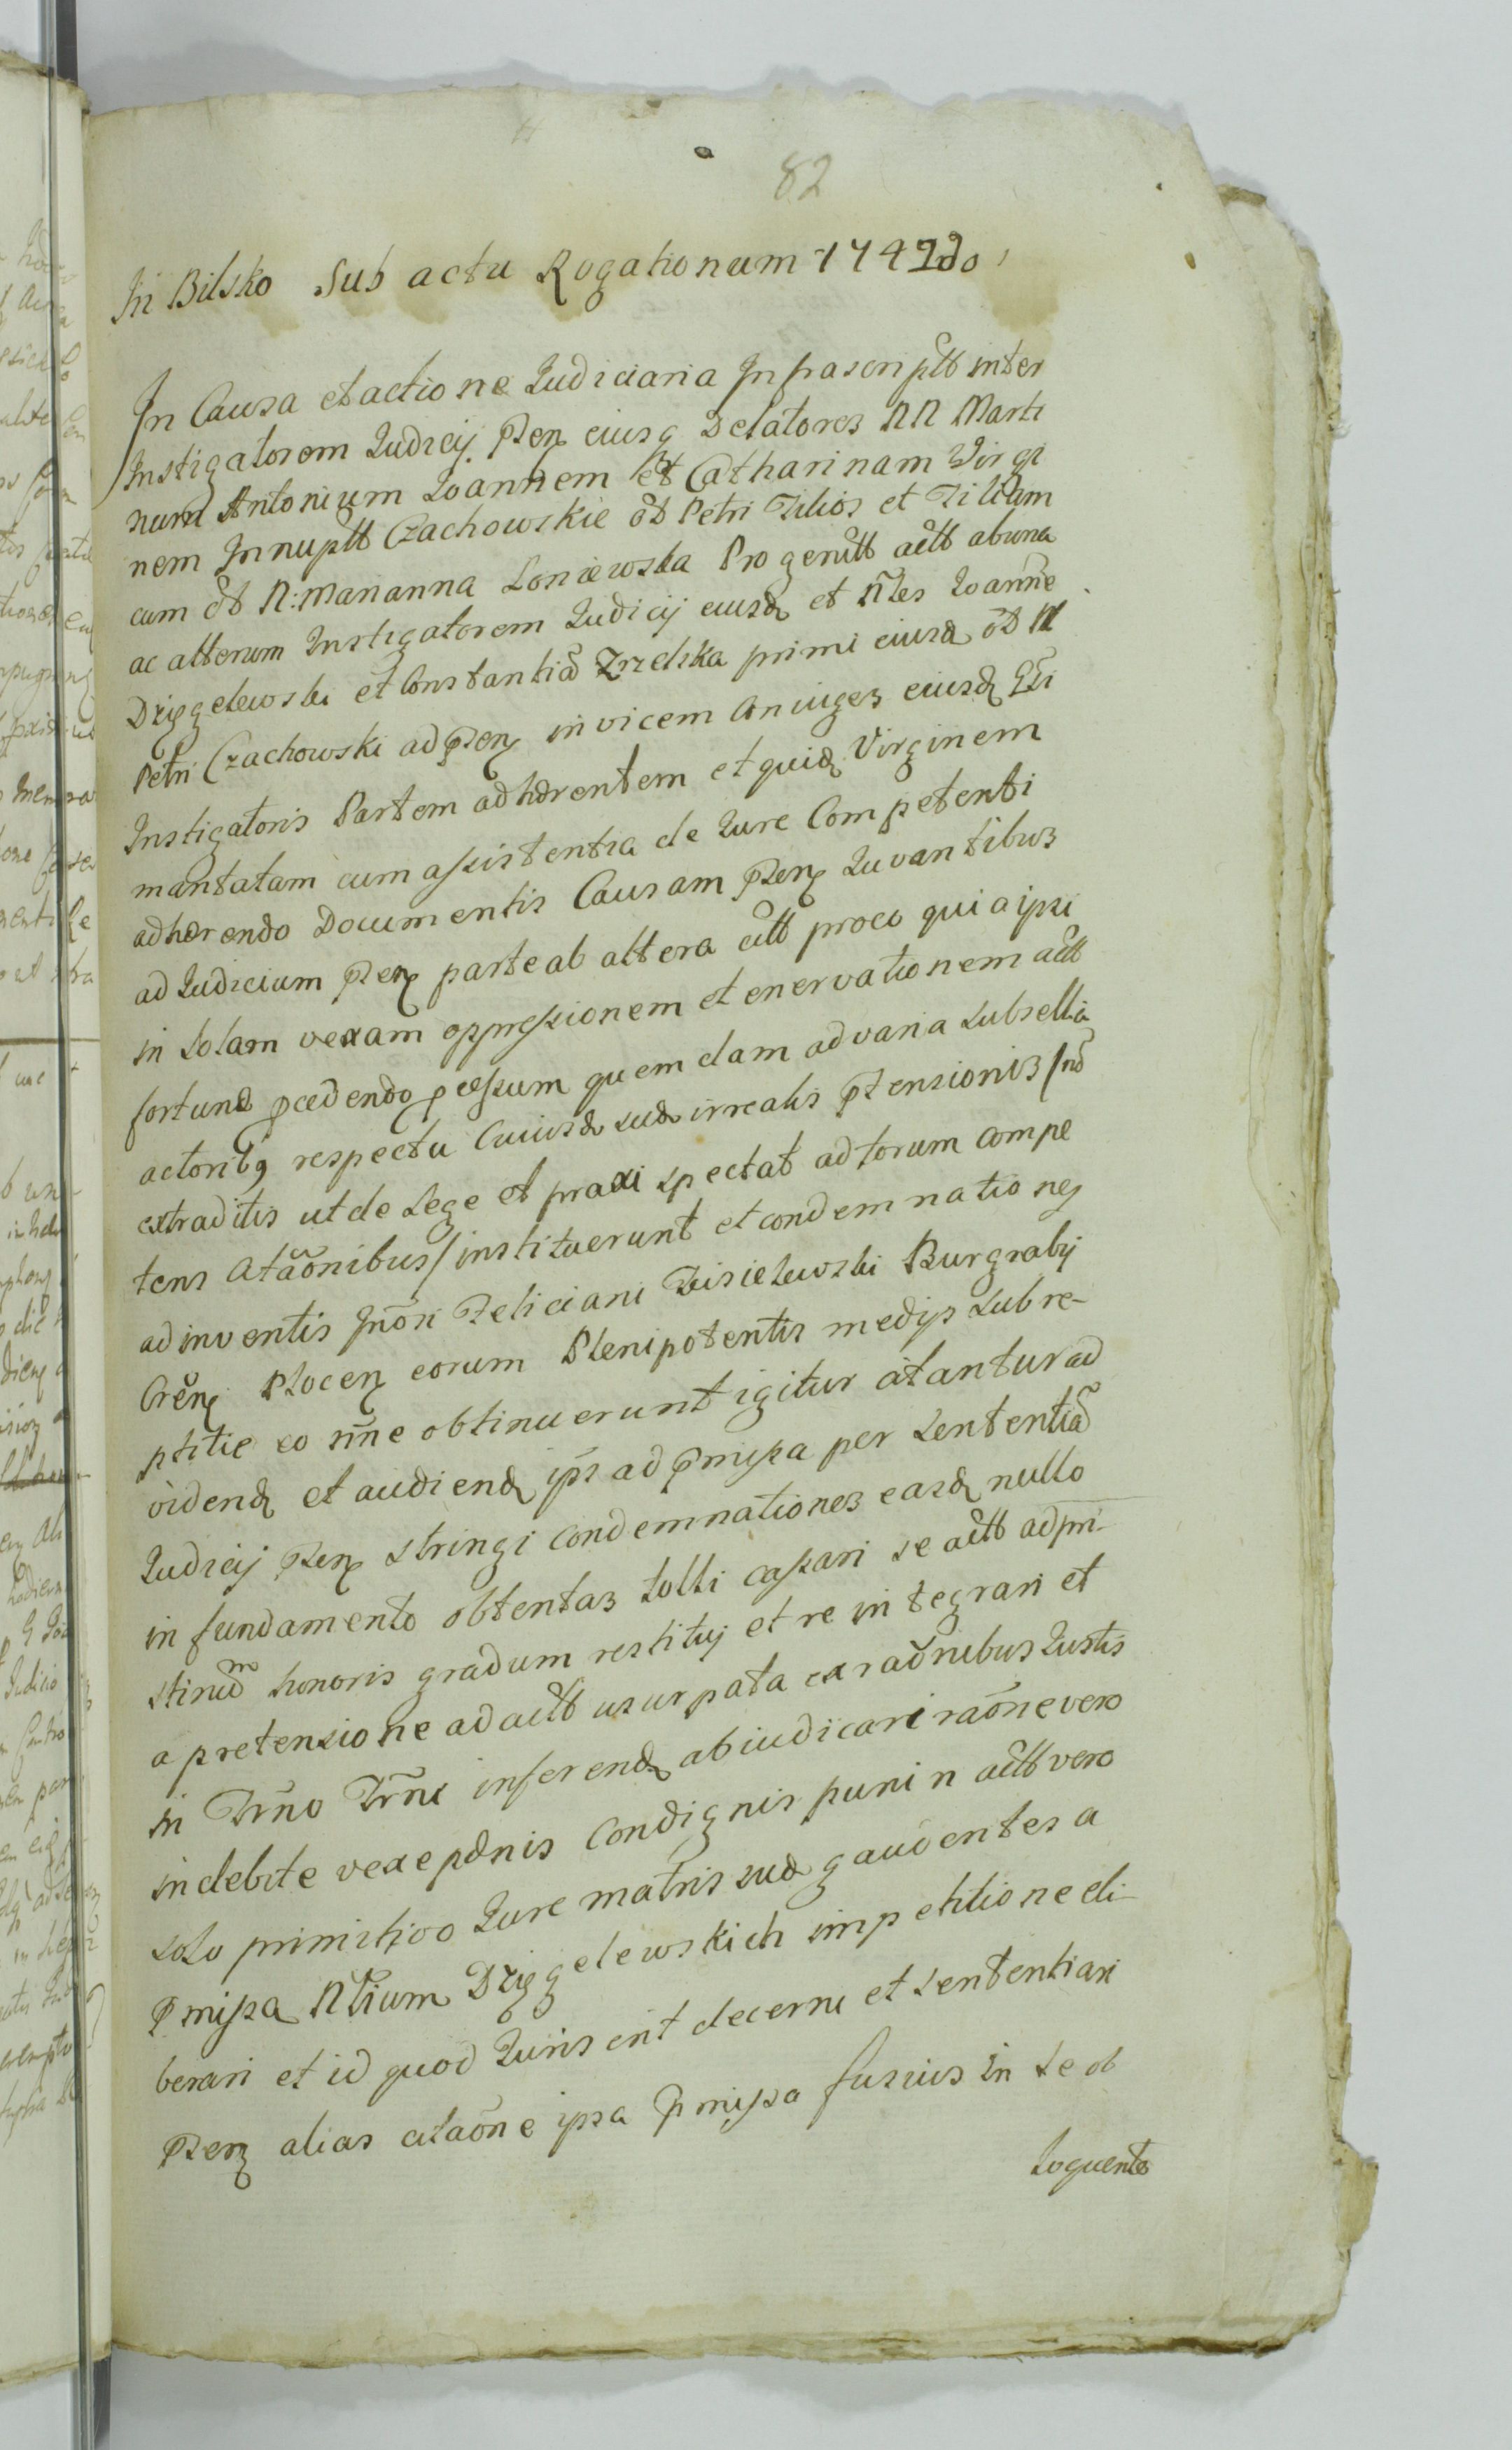 82
In Bilsko Sub actu Rogationum 1742do
In Causa et actione Iudiciaria Infrascriptt inter
Instigatorem Iudicij Pten eiusq Delatores NN Marti
num Antonium Ioannem et Catharinam Virgi
nem Innuptt Czachowskie ol Petri Filios et Filiam
cum ol N: Marianna Loniewska Progenitt actt ab una
ac alteram Instigatorem Iudicij eiusd et Nles Ioanne
et Constantia primi eiusd ol N
Petri Czachowski ad Pten invicem Coniuges eiusd
Instigatoris Partem adhærentem et quid Virginem
mantatam cum assistentia de Iure Competenti
adhærendo Documentis Causam Pten Iuvantibus
ad Iudicium Pten parte ab altera citt proco quia ipsi
in Solam vexam oppressionem et enervationem actt
fortunæ pcedendo pcessum quemdam ad varia subsellia
actoribq respectu Cuiusd suæ irrealis ptensionis
extraditis ut de Lege et praxi spectat ad forum compe
tens Ataonibus institueru​nt et condemnationes
ad inventis Feliciani Burgrabij
Plocen eorum Plenipotentis medijs subre-
ptitie eo nne obtinuerunt igitur atantur ad
vidend et audiend ips ad pmissa per Sententia
Iudicij Pten stringi condemnationes easd nullo
in fundamento obtentas tolli cassari se actt ad pri-
stinum honoris gradum restituj et re in tegrari et
a pretensione ad actt usurpata ex raonibus Iustis
in Trno Trni inferend abiudicari raone vero
in debite vexe pœnis Condignis puniri actt vero
solo primitivo Iure matris suæ gaudentes a
Pmissa Nlium impetitione eli-
berari et id quod Iuris erit decerni et sententiari
Pten alias ataone ipsa Pmissa fusius in se ob
loquente